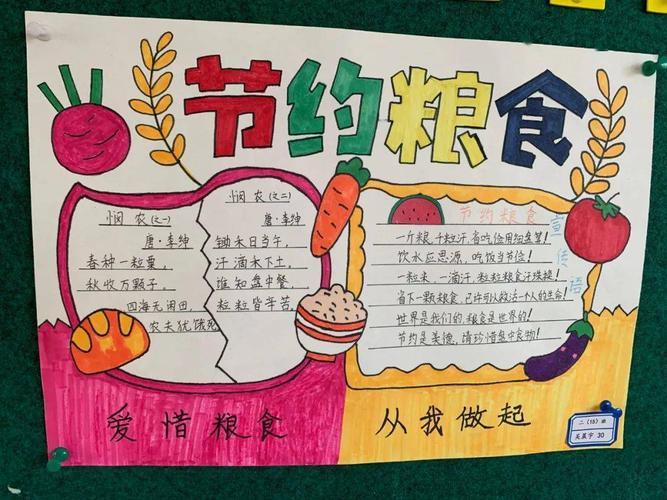 节约粮食
悯农(之一)
唐·李绅
春种一粒粟,
秋收万颗子。
四海无闲田,
农夫犹饿死
悯农(之二)
唐·李绅
锄禾日当午,
汗滴禾下土。
谁知盘中餐,
粒粒皆辛苦。
节约粮食
宣传语
一斤粮,千粒汗,省吃俭用细盘算!
饮水应思源,吃饭当节俭!
一粒米,一滴汗,粒粒粮食汗珠换!
省下一颗粮食,已许可以救活一个人的生命!
世界是我们的,粮食是世界的!
节约是美德,请珍惜盘中食物!
爱惜粮食
从我做起
二(15)班
30